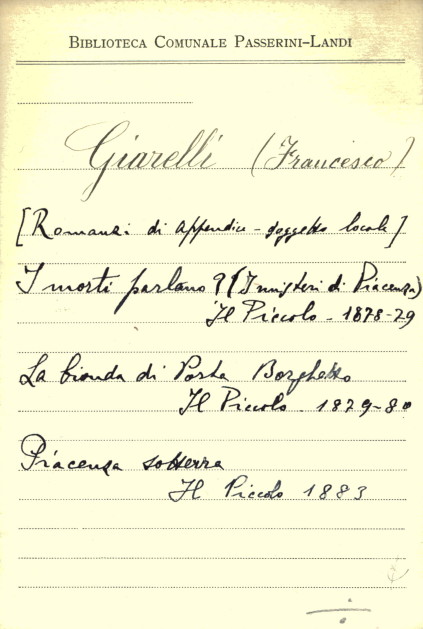 BIBLIOTECA COMUNALE PASSERINI-LANDI
Giarelli (Francesco)
[Romanzi di appendice - soggetto locale]
I morti parlano? (I misteri di Piacenza)
Il Piccolo - 1878-79
La bionda di Porta Borghetto
Il Piccolo - 1879-80
Piacenza sotterra
Il Piccolo 1883